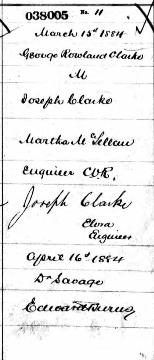 038005 No. 11
March 15th 1884
George Rowland Clarke
M
Joseph Clarke
Martha McLellan
Engineer C.V.R.
Joseph Clarke
Elora
Engineer
April 16th 1884
Dr Savage